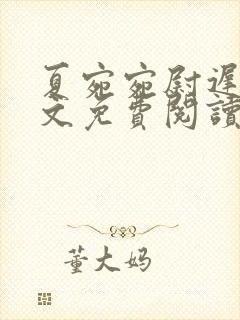 夏宛宛尉遲
文免費閱讀
董大妈